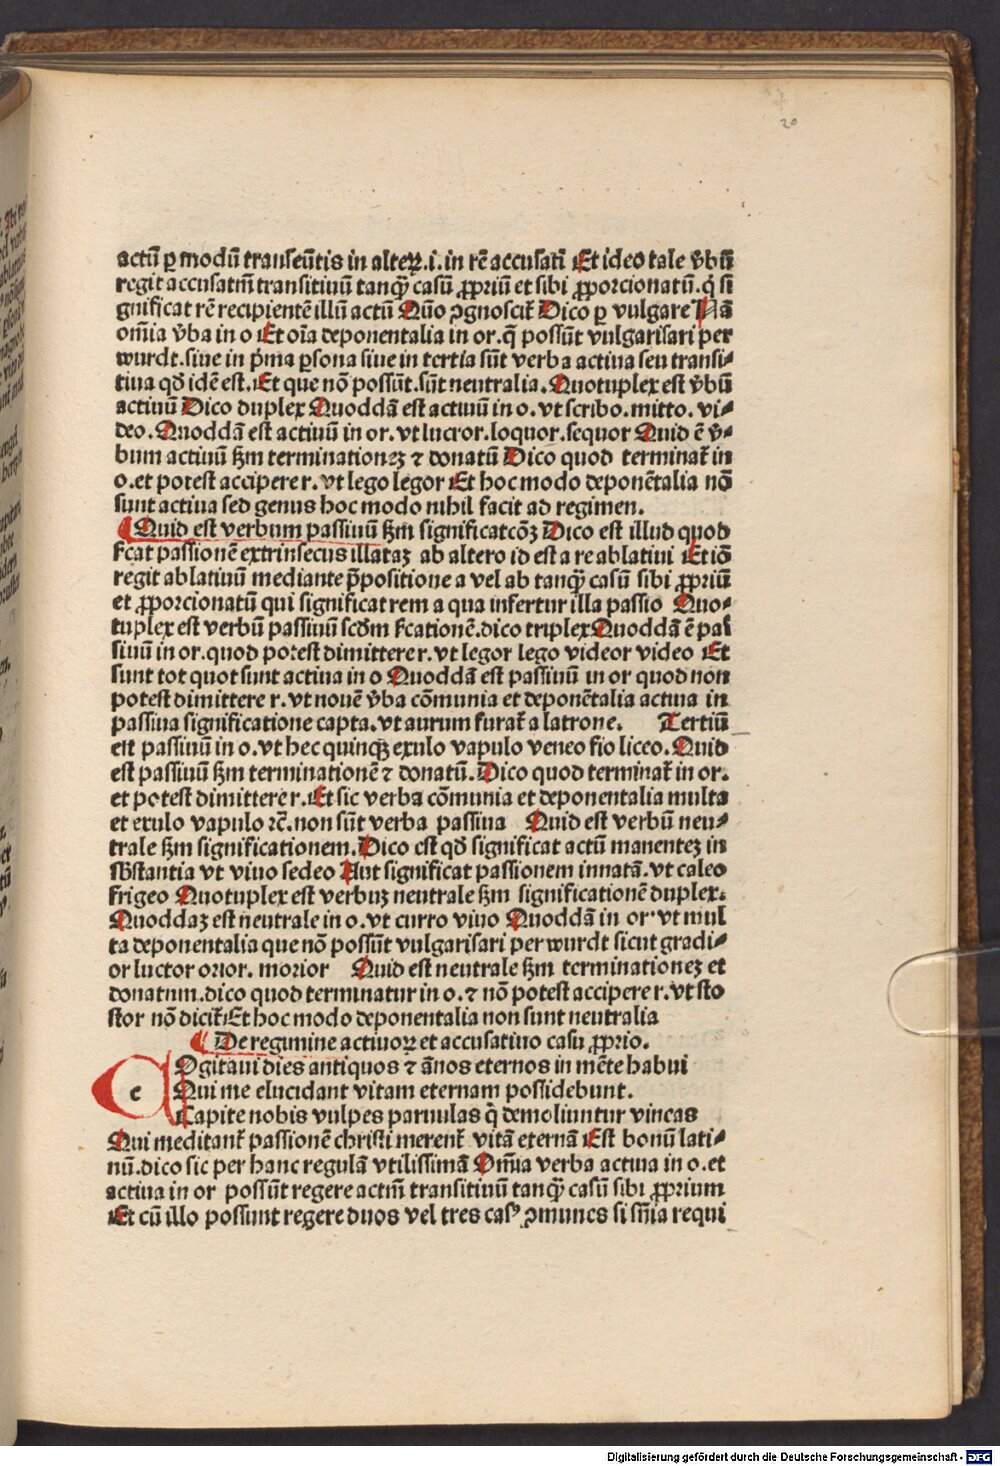 20
actū ꝑ modū transeūtis in alteꝝ.i.in rē accusati Et ideo tale ꝟbū
regit accusatm̄ transitiuū tanqȝ casū ꝓpriū et sibi ꝓporcionatū.q̄ si
gnificat rē recipientē illū actū Quō ꝯgnoscit̄ Dico ꝑ vulgare Nā
om̄ia ꝟba in o Et oīa deponentalia in or.q̄ possūt vulgarisari per
wurdt.siue in p̄ma ꝑsona siue in tertia sūt verba actiua seu transi⸗
tiua qd̄ idē est.Et que nō possūt.sūt neutralia.Quotuplex est ꝟbū
actiuū Dico duplex Quoddā est actiuū in o.vt scribo.mitto.vi⸗
deo.Quoddā est actiuū in or.vt lucror.loquor.sequor Quid ē ꝟ⸗
bum actiuū ẜm terminationeȝ ⁊ donatū Dico quod terminat̄ in
o.et potest accipere r.vt lego legor Et hoc modo deponētalia nō
sunt actiua sed genus hoc modo nihil facit ad regimen.
¶Quid est verbum passiuū ẜm significatcōȝ Dico est illud quod
ẜcat passionē extrinsecus illataȝ ab altero id est a re ablatiui Et iō
regit ablatiuū mediante p̄positione a vel ab tanqȝ casū sibi ꝓpriū
et ꝓporcionatū qui significat rem a qua infertur illa passio Quo⸗
tuplex est verbū passiuū scd̄m ẜcationē.dico triplex Quoddā ē pas
siuū in or.quod potest dimittere r.vt legor lego videor video Et
sunt tot quot sunt actiua in o Quoddā est passiuū in or quod non
potest dimittere r.vt nouē ꝟba cōmunia et deponētalia actiua in
passiua significatione capta.vt aurum furat̄ a latrone. Tertiū
est passiuū in o.vt hec quinqȝ exulo vapulo veneo fio liceo.Quid
est passiuū ẜm terminationē ⁊ donatū.Dico quod terminat̄ in or.
et potest dimittere r.Et sic verba cōmunia et deponentalia multa
et exulo vapulo ⁊c̄.non sūt verba passiua Quid est verbū neu⸗
trale ẜm significationem.Dico est qd̄ significat actū manenteȝ in
sb̄stantia vt viuo sedeo Aut significat passionem innatā.vt caleo
frigeo Quotuplex est verbuȝ neutrale ẜm significationē duplex.
Quoddaȝ est neutrale in o.vt curro viuo Quoddā in or.vt mul
ta deponentalia que nō possūt vulgarisari per wurdt sicut gradi⸗
or luctor orior.morior Quid est neutrale ẜm terminationeȝ et
donatum.dico quod terminatur in o.⁊ nō potest accipere r.vt sto
stor nō dicit̄ Et hoc modo deponentalia non sunt neutralia
¶De regimine actiuoꝝ et accusatiuo casu ꝓprio.
COgitaui dies antiquos ⁊ ānos eternos in mēte habui
Qui me elucidant vitam eternam possidebunt.
Capite nobis vulpes paruulas q̄ demoliuntur vineas
Qui meditant̄ passionē christi merent̄ vitā eternā Est bonū lati⸗
nū.dico sic per hanc regulā vtilissimā Om̄ia verba actiua in o.et
actiua in or possūt regere actm̄ transitiuū tanqȝ casū sibi ꝓprium
Et cū illo possunt regere duos vel tres casꝰ ꝯmunes si sn̄ia requi
Digitalisierung gefördert durch die Deutsche Forschungsgemeinschaft - DFG